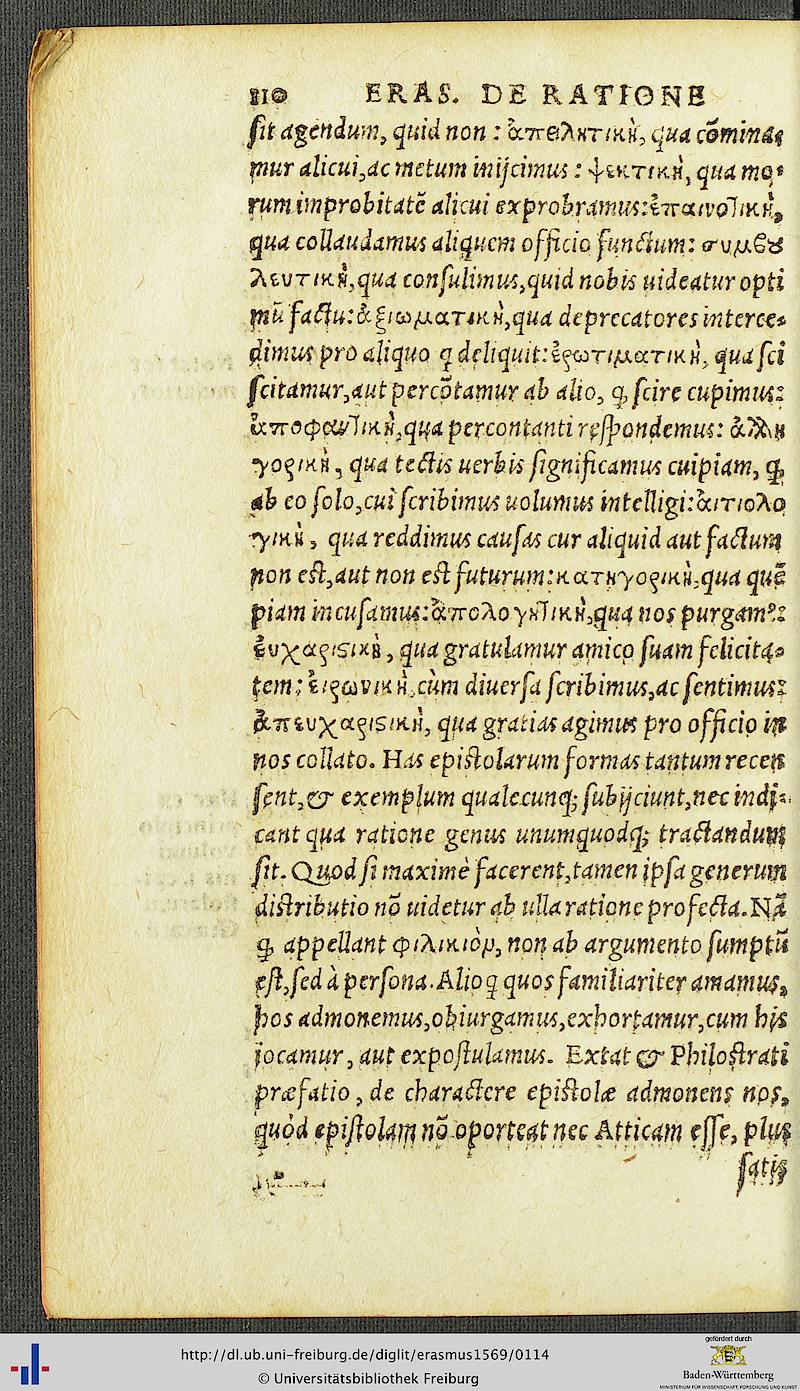 110 ERAS. DE RATIONE
ſit agendum, quid non : ἀπειλητικὴ, qua cõmina⸗
mur alicui, ac metum inijcimus : ψεκτικὴ, qua mo⸗
rum improbitatẽ alicui exprobramus: ἐπαινετικὴ,
qua collaudamus aliquem officio functum: συμβου
λευτικὴ, qua conſulimus, quid nobis uideatur opti
mũ factu: ἀξιωματικὴ, qua deprecatores interce⸗
dimus pro aliquo q̃ deliquit: ἐρωτιματικὴ, qua ſci
ſcitamur, aut percõtamur ab alio, q̃ ſcire cupimus:
ἀποφαντικὴ, qua percontanti reſpondemus: ἀλλη
γορικὴ, qua tectis uerbis ſignificamus cuipiam, q̃
ab eo ſolo, cui ſcribimus uolumus intelligi: ἀιτιολο
γικὴ, qua reddimus cauſas cur aliquid aut factum
non eſt, aut non eſt futurum: κατηγορικὴ, qua quẽ
piam incuſamus: ἀπολογητικὴ, qua nos purgamꝰ:
ἐυχαριστικὴ, qua gratulamur amico ſuam felicita⸗
tem: ἐιρωνικὴ, cùm diuerſa ſcribimus, ac ſentimus:
ἀπευχαριστικὴ, qua gratias agimus pro officio in
nos collato. Has epiſtolarum formas tantum recen
ſent, & exemplum qualecunq; ſubijciunt, nec indi⸗
cant qua ratione genus unumquodq; tractandum
ſit. Quod ſi maximè facerent, tamen ipſa generum
diſtributio nõ uidetur ab ulla ratione profecta. Nã
q̃ appellant φιλικιὸμ, non ab argumento ſumptũ
eſt, ſed à perſona. Alioq̃ quos familiariter amamus,
hos admonemus, obiurgamus, exhortamur, cum his
iocamur, aut expoſtulamus. Extat & Philoſtrati
præfatio, de charactere epiſtolæ admonens nos,
quòd epiſtolam nõ oporteat nec Atticam eſſe, plus
ſatis
http://dl.ub.uni-freiburg.de/diglit/erasmus1569/0114
© Universitätsbibliothek Freiburg
gefördert durch
Baden-Württemberg
MINISTERIUM FÜR WISSENSCHAFT, FORSCHUNG UND KUNST